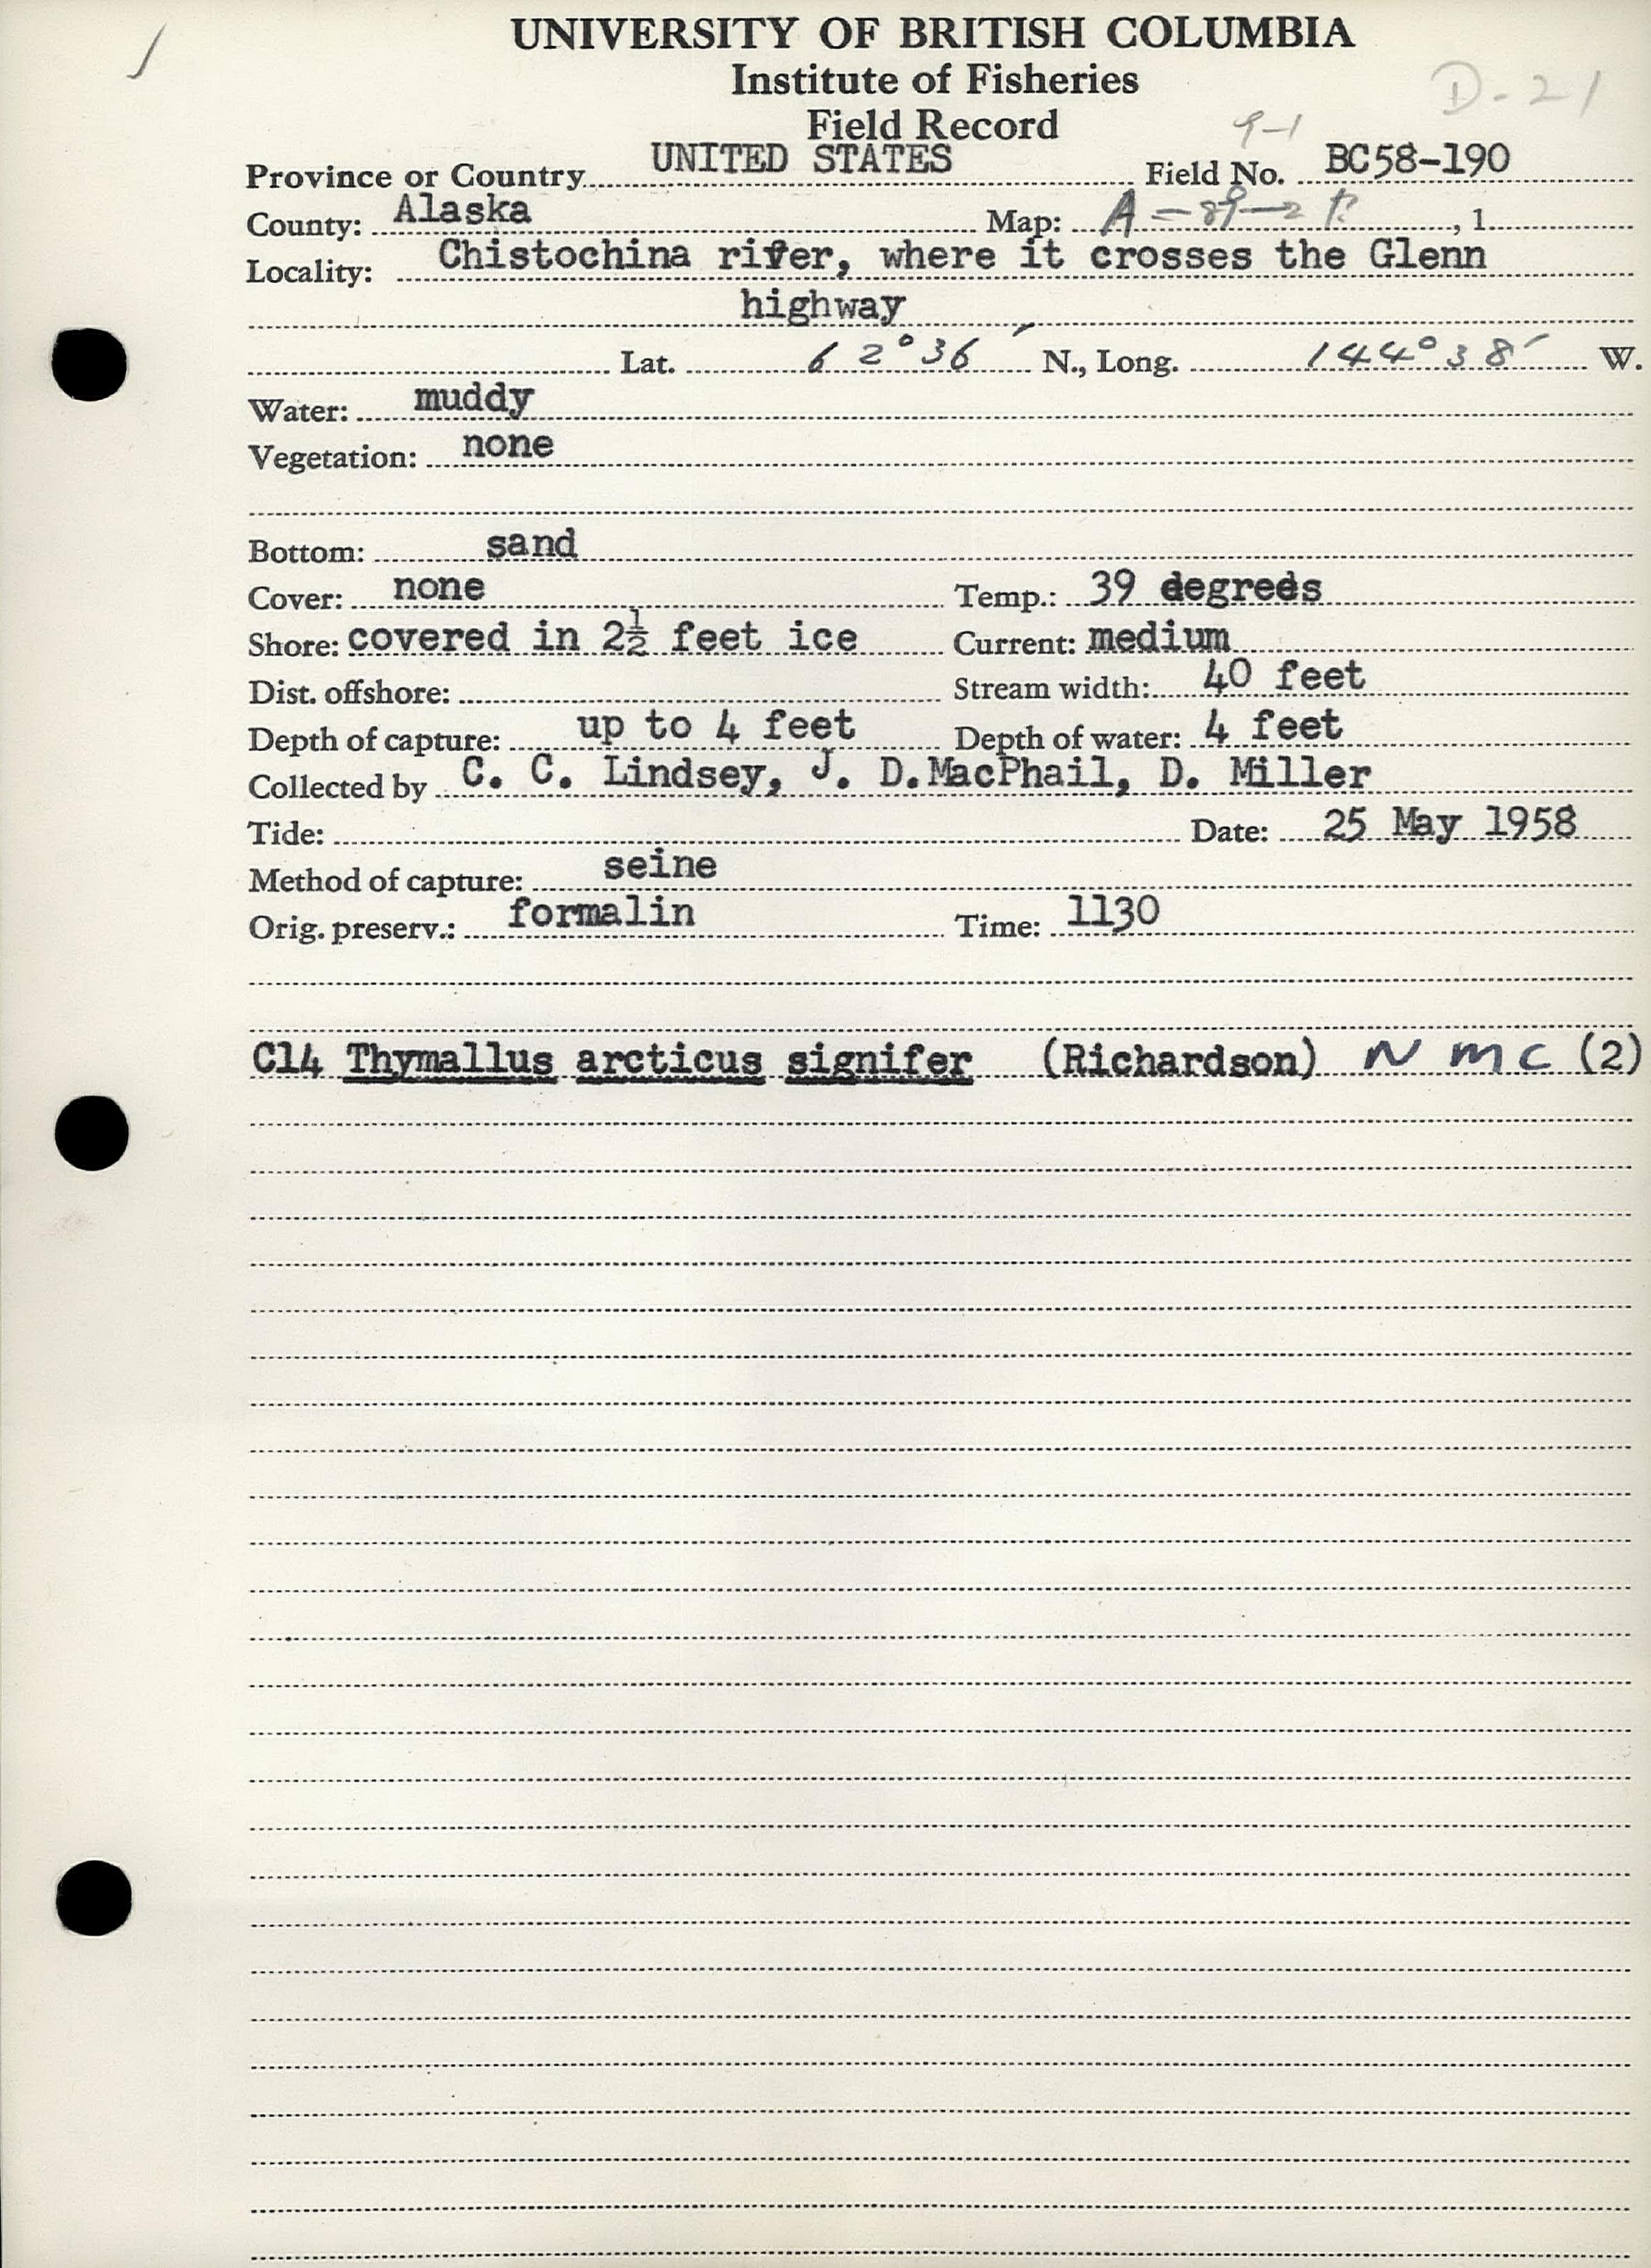 UNIVERSITY OF BRITISH COLUMBIA
Institute of Fisheries
D-21
Field Record
9-1
Province or Country UNITED STATES Field No. BC58-190
County: Alaska Map: A , 1
Locality: Chistochina river, where it crosses the Glenn
highway
Lat. 62°36′ N., Long. 144°38′ W.
Water: muddy
Vegetation: none
Bottom: sand
Cover: none Temp.: 39 degrees
Shore: covered in 2½ feet ice Current: medium
Dist. offshore: Stream width: 40 feet
Depth of capture: up to 4 feet Depth of water: 4 feet
Collected by C. C. Lindsey, J. D. MacPhail, D. Miller
Tide: Date: 25 May 1958
Method of capture: seine
Orig. preserv.: formalin Time: 1130
C14 Thymallus arcticus signifer (Richardson) NMC (2)